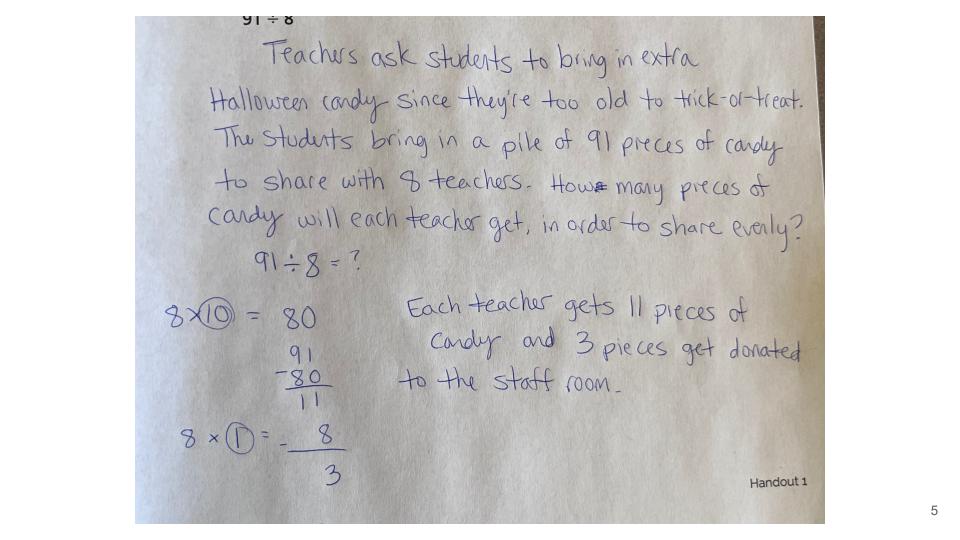 91 ÷ 8
Teachers ask students to bring in extra
Halloween candy since they're too old to trick-or-treat.
The students bring in a pile of 91 pieces of candy
to share with 8 teachers. How many pieces of
candy will each teacher get, in order to share evenly?
91 ÷ 8 = ?
8 × 10 = 80
91
- 80
11
8 × 1 = - 8
3
Each teacher gets 11 pieces of
candy and 3 pieces get donated
to the staff room.
Handout 1
5